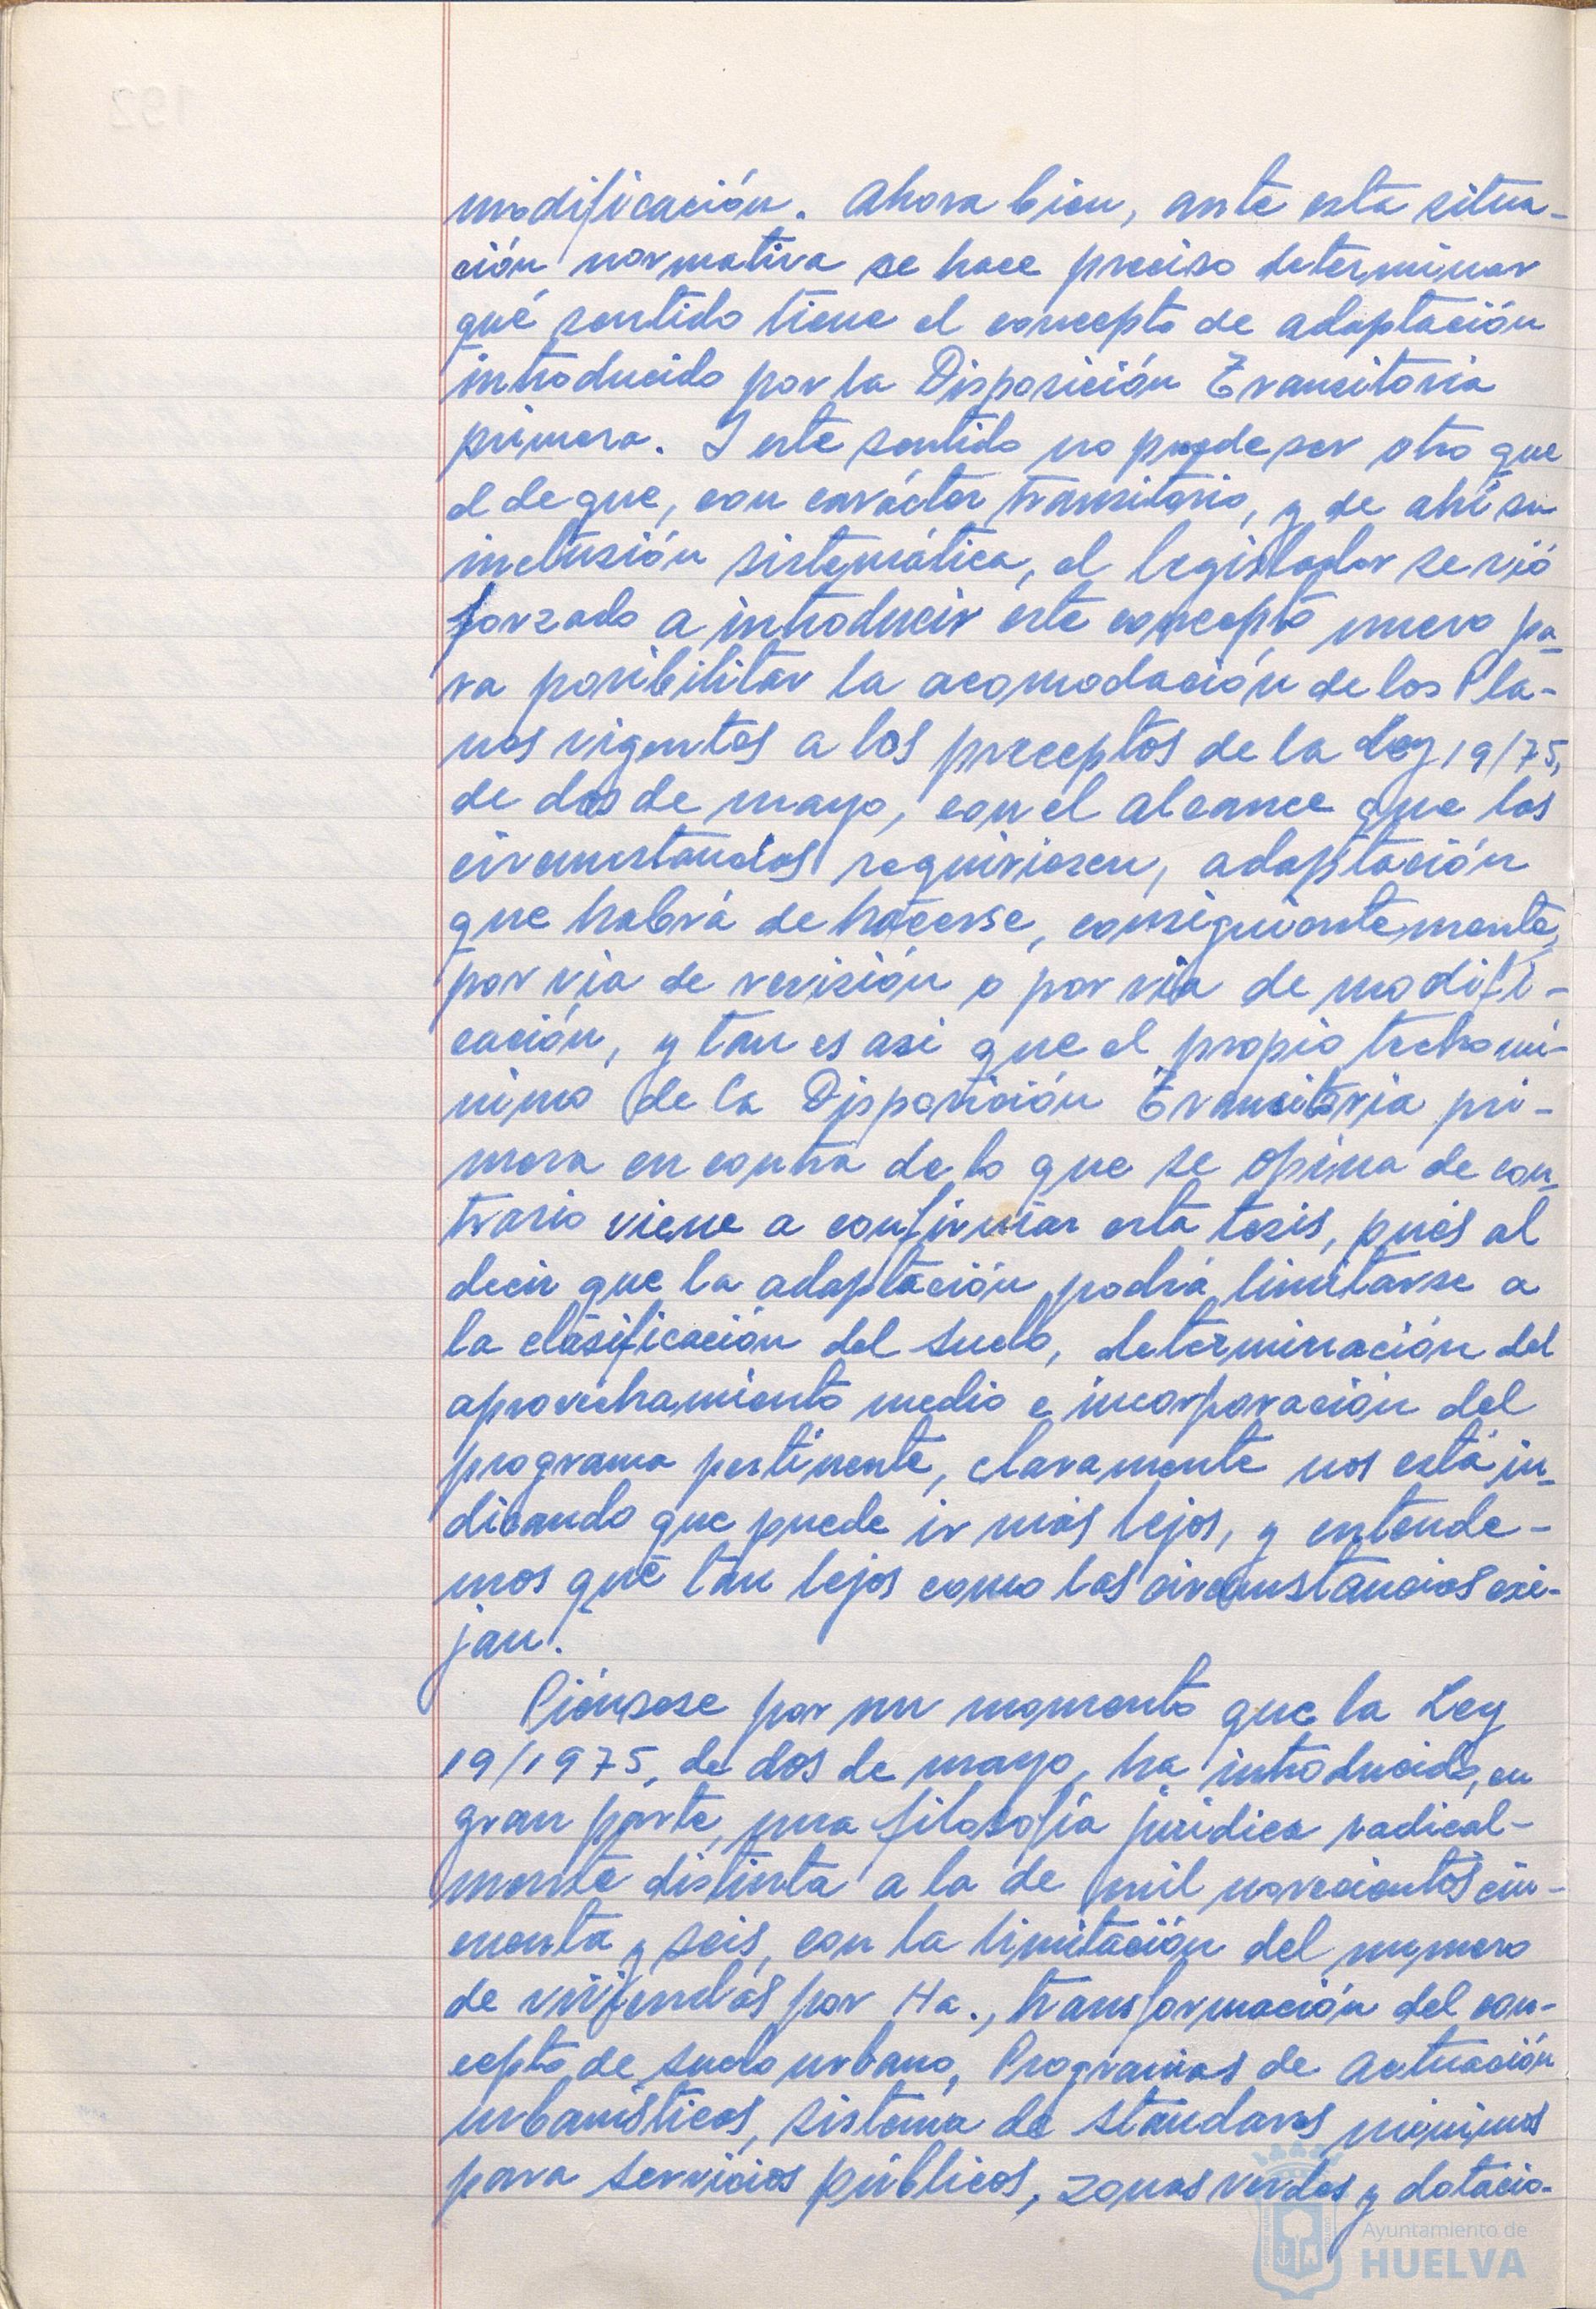 modificación. Ahora bien, ante esta situa-
ción normativa se hace preciso determinar
qué sentido tiene el concepto de adaptación
introducido por la Disposición Transitoria
primera. Y este sentido no puede ser otro que
el de que, con carácter transitorio, y de ahí su
inclusión sistemática, el legislador se vió
forzado a introducir este concepto nuevo pa-
ra posibilitar la acomodación de los Pla-
nes vigentes a los preceptos de la Ley 19/75,
de dos de mayo, con el alcance que las
circunstancias requiriesen, adaptación
que habrá de hacerse, consiguientemente,
por via de revisión o por via de modifi-
cación, y tan es asi que el propio techo mí-
nimo de la Disposición Transitoria pri-
mera en contra de lo que se opina de con-
trario viene a confirmar esta tesis, pués al
decir que la adaptación podrá limitarse a
la clasificación del suelo, determinación del
aprovechamiento medio e incorporación del
programa pertinente, claramente nos está in-
dicando que puede ir más lejos, y entende-
mos que tan lejos como las circunstancias exi-
jan.
Piénsese por un momento que la Ley
19/1975, de dos de mayo, ha introducido, en
gran parte, una filosofía jurídica radical-
mente distinta a la de mil novecientos cin-
cuenta y seis, con la limitación del numero
de viviendas por Ha., transformación del con-
cepto de suelo urbano, Programas de Actuación
urbanísticos, sistema de standares minimos
para servicios públicos, zonas verdes y dotacio-
Ayuntamiento de
HUELVA
192